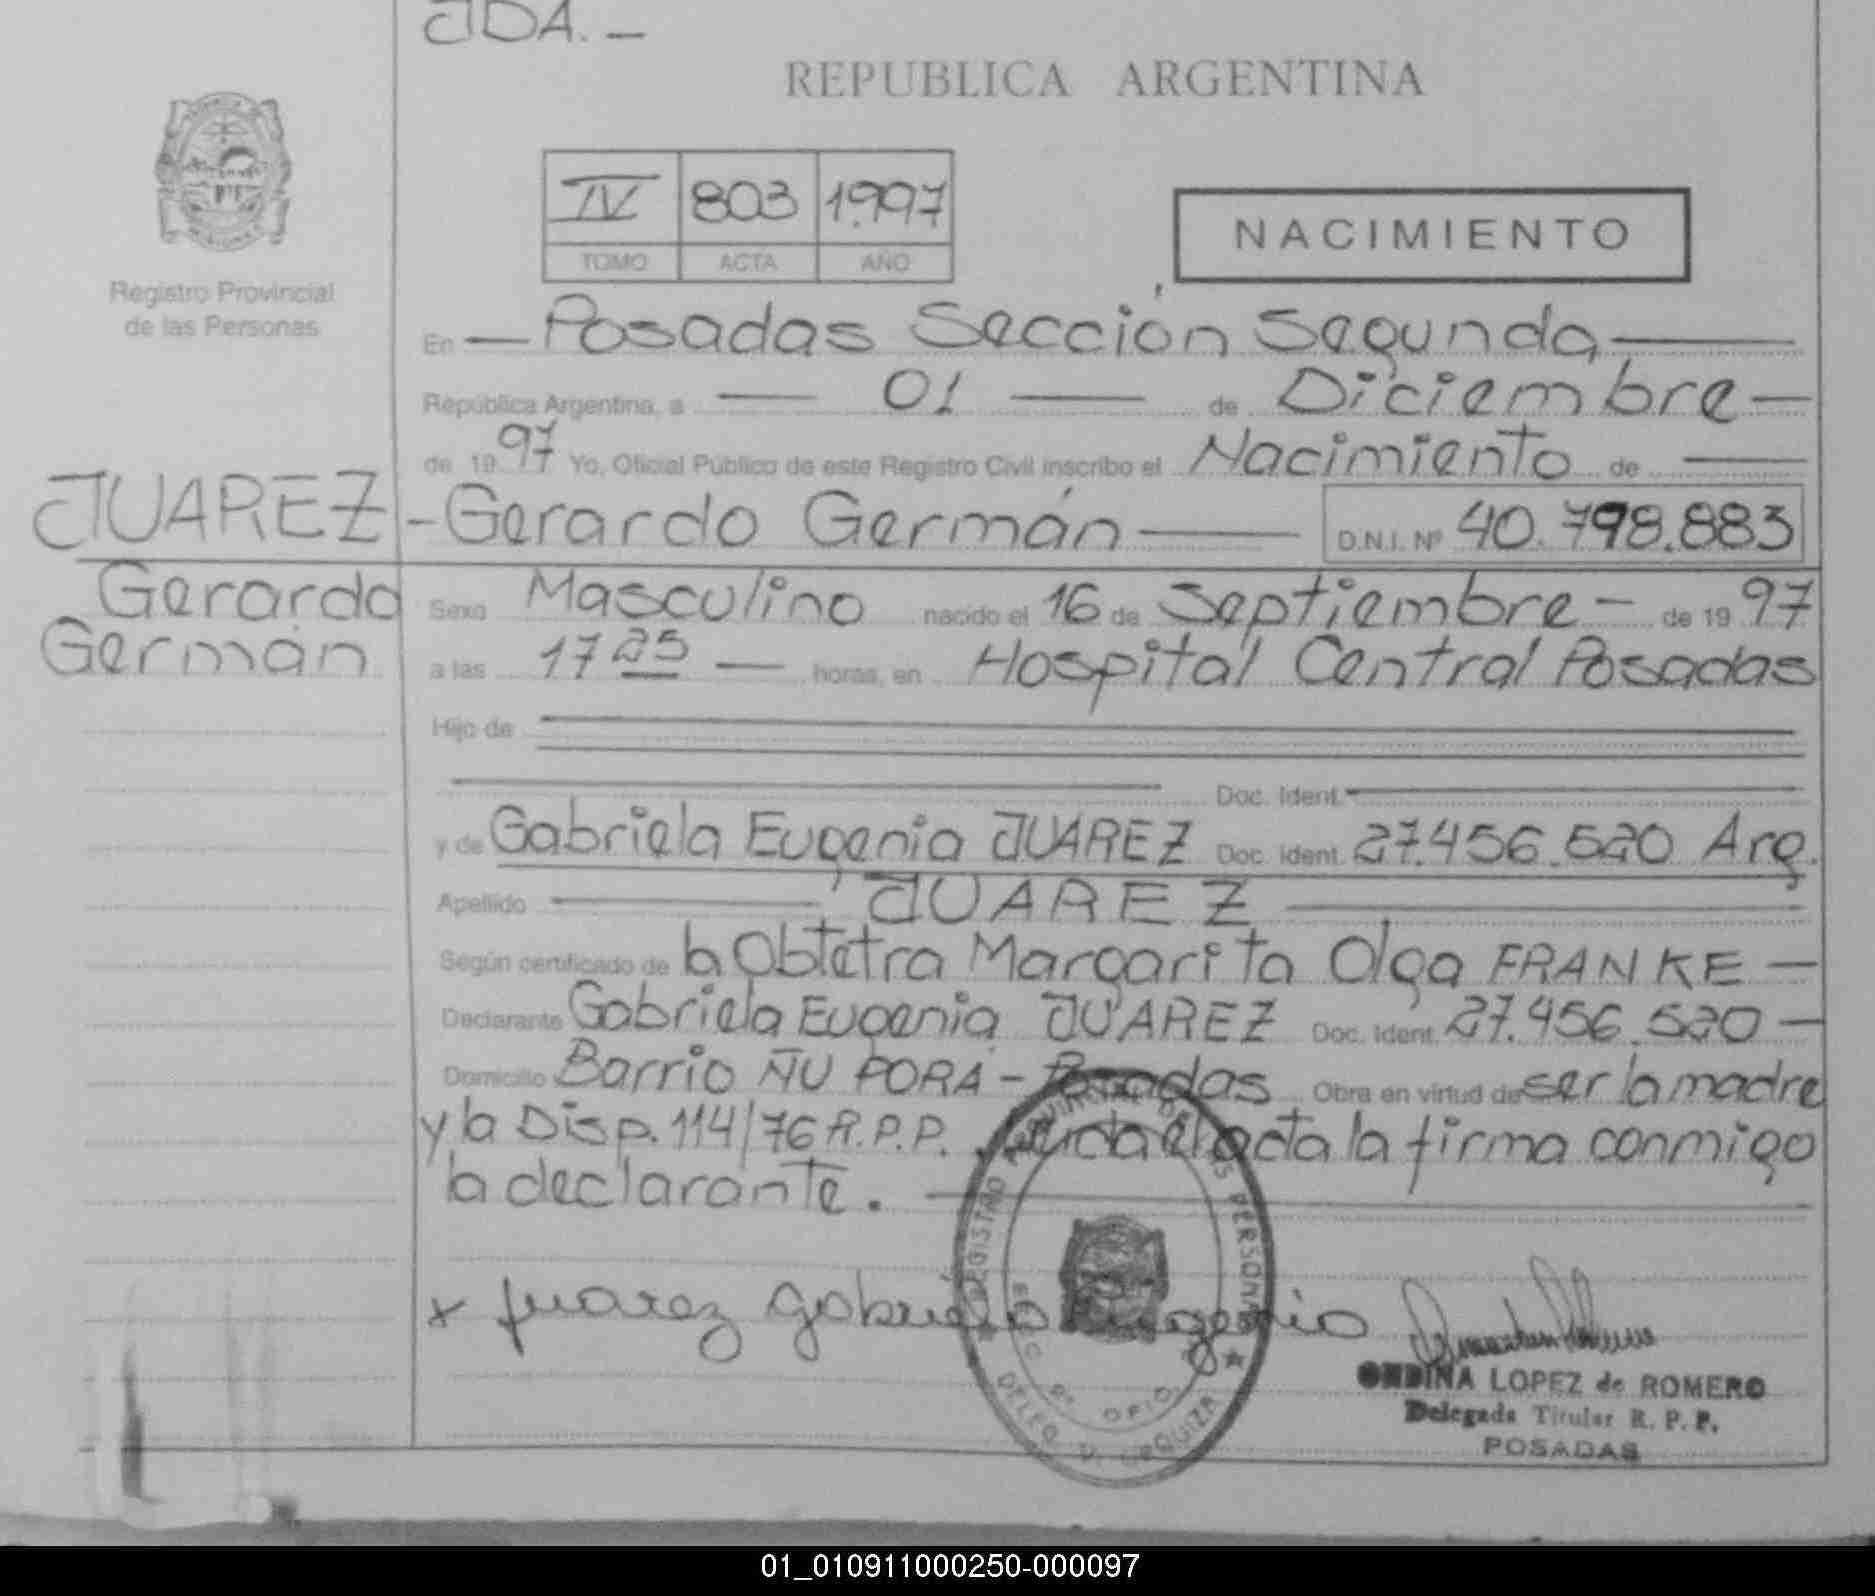 JDA. _
REPUBLICA ARGENTINA
IV 803 1997
TOMO ACTA AÑO
NACIMIENTO
Registro Provincial
de las Personas
En — Posadas Sección Segunda —
República Argentina, a — 01 — de Diciembre —
de 19 97 Yo, Oficial Público de este Registro Civil inscribo el Nacimiento de —
JUAREZ - Gerardo Germán — D.N.I. Nº 40.798.883
Gerardo
Germán
Sexo Masculino nacido el 16 de Septiembre — de 19 97
a las 17 25 — horas, en Hospital Central Posadas
Hijo de
Doc. Ident.
y de Gabriela Eugenia JUAREZ Doc. Ident. 27.456.520 Arg.
Apellido — JUAREZ —
Según certificado de la Obtetra Margarita Olga FRANKE —
Declarante Gabriela Eugenia JUAREZ Doc. Ident. 27.456.520 —
Domicilio Barrio ÑU PORÁ - Posadas Obra en virtud de ser la madre
y la Disp. 114/76 R.P.P. Leída el acta la firma conmigo
la declarante. —
x Juarez Gabriela Eugenia
REGISTRO PROVINCIAL DE LAS PERSONAS
ONDINA LOPEZ de ROMERO
Delegada Titular R. P. P.
POSADAS
01_010911000250-000097